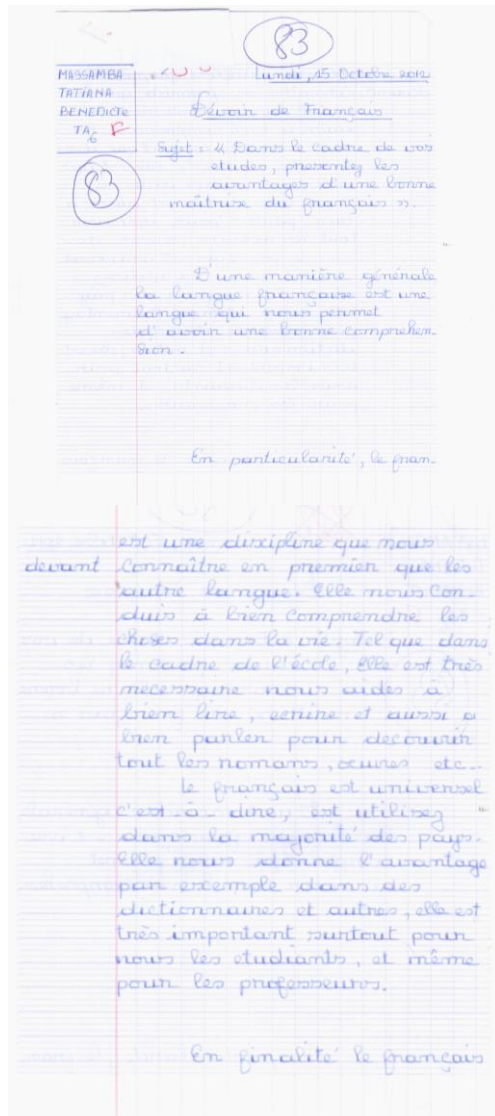 83
MASSAMBA
TATIANA
BENEDICTE
TA6 F
83
Lundi, 15 Octobre 2012
Dévoir de Français
Sujet : « Dans le cadre de vos
etudes, presentez les
avantages d'une bonne
maîtrise du français ».
D'une manière générale
la langue française est une
langue qui nous permet
d'avoir une bonne comprehen-
sion.
En particularité, le fran-
est une discipline que nous
devant connaître en premier que les
autre langue. Elle nous con-
duis à bien comprendre les
choses dans la vie. Tel que dans
le cadre de l'école, Elle est très
necessaire nous aides à
bien lire, ecrire et aussi a
bien parler pour decouvrir
tout les romans, œuvres etc...
Le français est universel
c'est-à-dire, est utilisez
dans la majorité des pays.
Elle nous donne l'avantage
par exemple dans des
dictionnaires et autres, elle est
très important surtout pour
nous les etudiants, et même
pour les professeurs.
En finalité le français